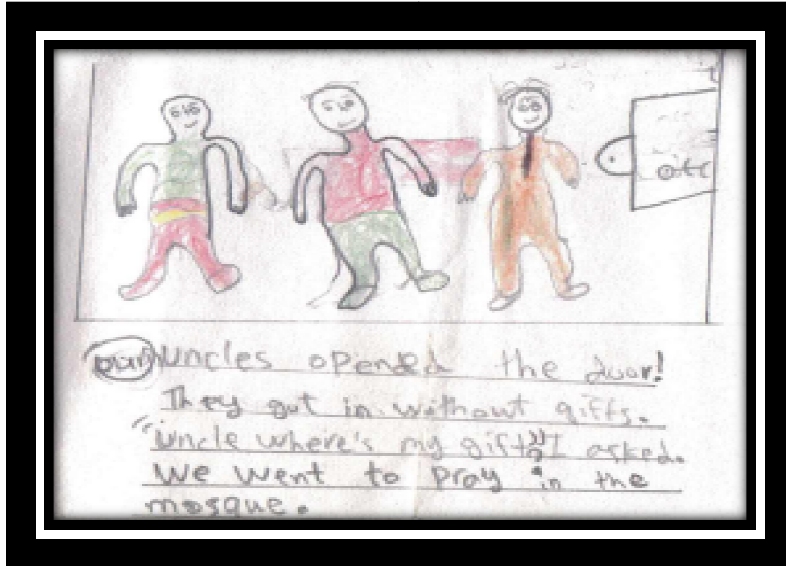 our uncles opended the duor!
They got in without gifts.
"Uncle where's my gift?" I asked.
We went to pray in the
mosque.